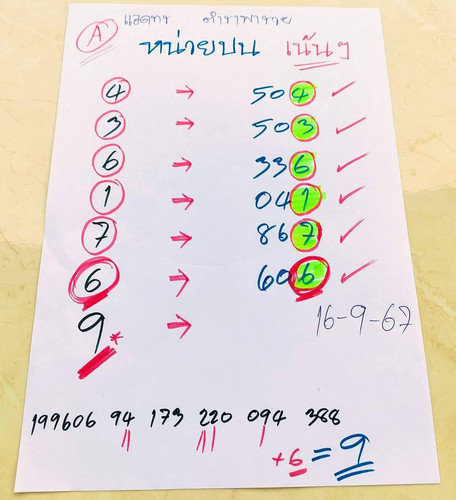 A แอดทร ตำราพารวย
หน่วยบน เน้นๆ
4 → 504 ✓
3 → 503 ✓
6 → 336 ✓
1 → 041 ✓
7 → 867 ✓
6 → 606 ✓
9* →
16-9-67
199606 94 173 220 094 388
+6=9